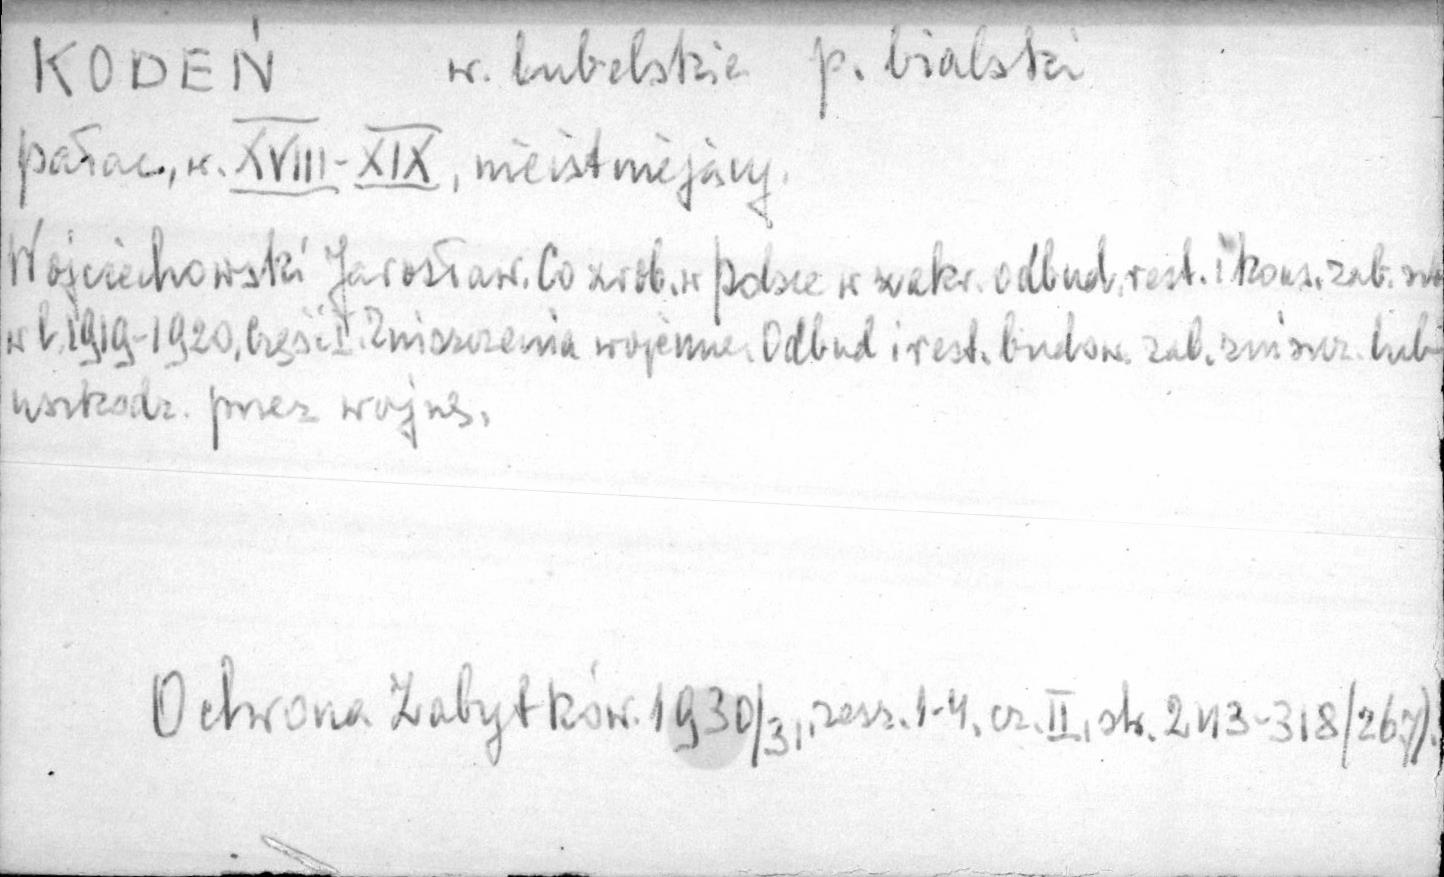 KODEŃ w. lubelskie p. bialski
pałac, w. XVIII-XIX, nieistniejący.
Wojciechowski Jarosław. Co zrob. w Polsce w zakr. odbud. rest. i kons. zab. szt
w l. 1919-1920, Część I. Zniszczenia wojenne. Odbud i rest. budow. zab. zniszcz. lub
uszkodz. przez wojnę.
Ochrona Zabytków. 1930/31, zesz. 1-4. cz. II, str. 243-318/267).